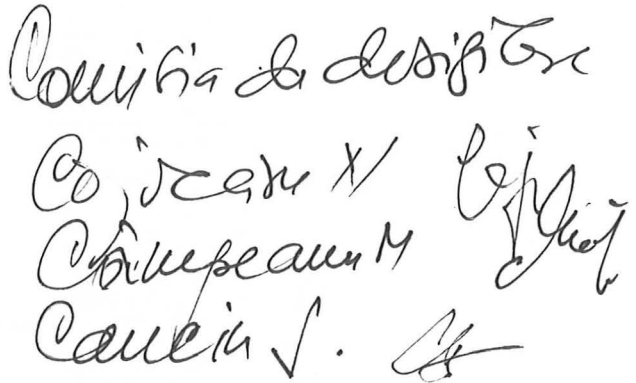 Comisia de desigilare
Cojocaru V
Câmpeanu M
Cancin S.